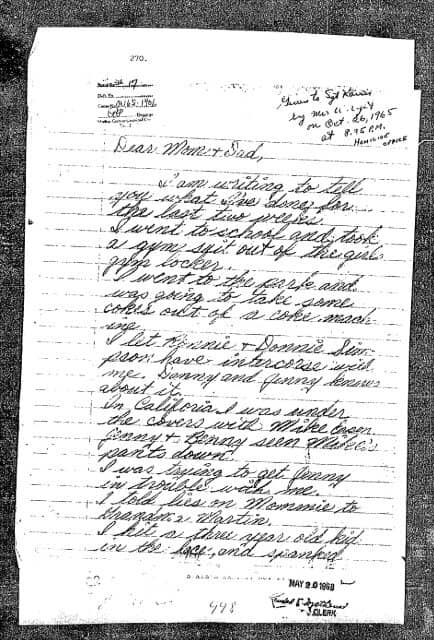 270.
17
Given to Sgt Kaiser
by Mrs
on Oct. 26, 1965
at 8:45 P.M.
HOMICIDE OFFICE
Dear Mom & Dad,
I am writing to tell
you what I've done for
the last two weeks.
I went to school and took
a gym suit out of the girls
gym locker.
I went to the park and
was going to take some
cokes out of a coke mach-
ine
I let Ronnie & Donnie Sim-
pson have intercorse with
me. Danny and Jenny knew
about it.
In Califoria I was under
the covers with Mike
Jenny & Benny seen Mike's
pants down.
I was trying to get Jenny
in trouble with me.
I told lies on Mommie to
Grandma Martin.
I hit a three year old kid
in the face, and spanked
MAY 20 1966
CLERK
448